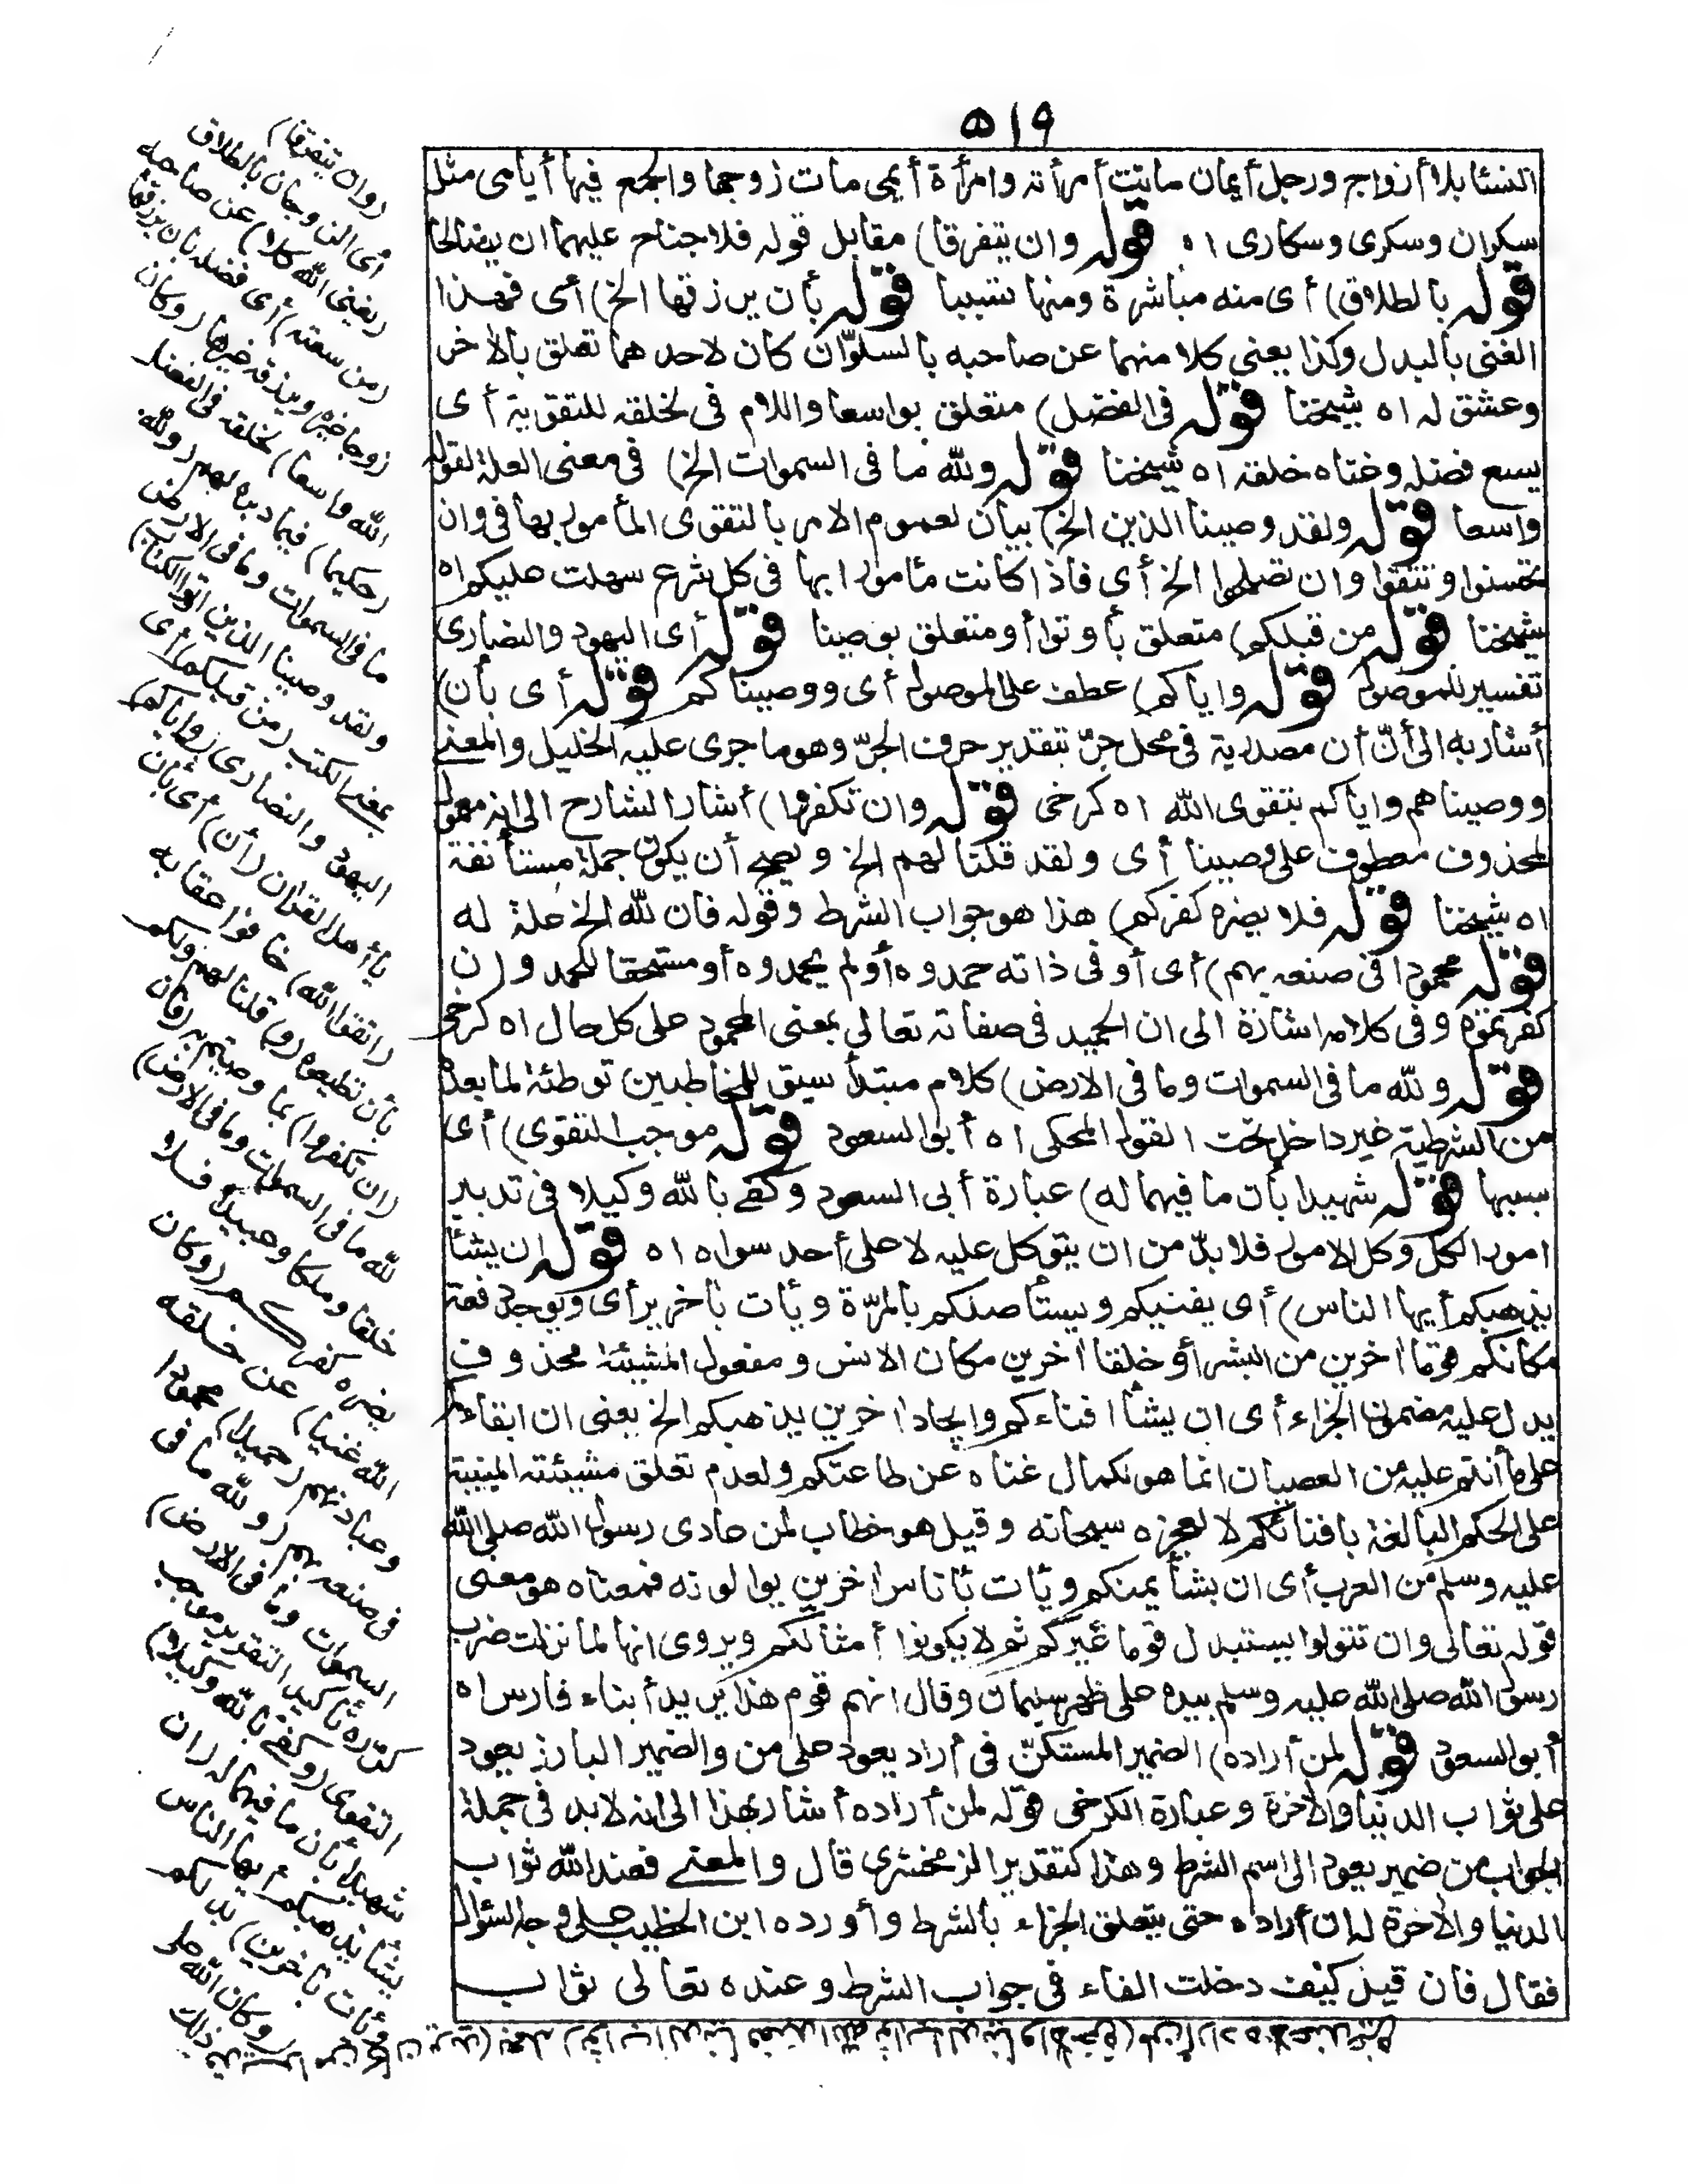 ٥١٩
النسا بلا أزواج ورجل أيمان ماتت أمرأته وامرأة أيمى مات زوجها والجمع فيها أيامى مثل
سكران وسكرى وسكارى اه قوله وان يتفرقا) مقابل قوله فلا جناح عليهما ان يصالحا
قوله بالطلاق) أى منه مباشرة ومنها تسببا قوله بأن يرزقها الخ) أى فهذا
الغنى بالبدل وكذا يغنى كلا منهما عن صاحبه بالسلوّان كان لاحدهما تعلق بالآخر
وعشق له اه شيخنا قوله فى الفضل) متعلق بواسعا واللام فى لخلقه للتقوية أى
يسع فضله وغناه خلقه اه شيخنا قوله ولله ما فى السموات الخ) فى معنى العلة لقوله
واسعا قوله ولقد وصينا الذين الخ) بيان لعموم الامر بالتقوى المأمور بها فى وان
تحسنوا وتتقوا وان تصلحوا الخ أى فاذا كانت مأمورا بها فى كل شرع سهلت عليكم اه
شيخنا قوله من قبلكم) متعلق بأوتوا أو متعلق بوصينا قوله أى اليهود والنصارى
تفسير للموصول قوله واياكم) عطف على الموصول أى ووصيناكم قوله أى بأن)
أشار به الى أنّ أن مصدرية فى محل جرّ بتقدير حرف الجرّ وهو ما جرى عليه الخليل والمعنے
ووصيناهم واياكم بتقوى الله اه كرخى قوله وان تكفروا) أشار الشارح الى انه معمول
لمحذوف معطوف على وصينا أى ولقد قلنا لهم الخ ويصح أن يكون جملة مستأنفة
اه شيخنا قوله فلا يضره كفركم) هذا هو جواب الشرط وقوله فان لله الخ علة له
قوله محمودا فى صنعه بهم) أى أو فى ذاته حمدوه أو لم يحمدوه أو مستحقا للحمد وان
كفرتموه وفى كلامه اشارة الى ان الحميد فى صفاته تعالى بمعنى المحمود على كل حال اه كرخى
قوله ولله ما فى السموات وما فى الارض) كلام مبتدأ سيق للمخاطبين توطئة لما بعده
من الشرطية غير داخل تحت القول المحكى اه أبو السعود قوله موجب التقوى) أى
سببها قوله شهيدا بأن ما فيهما له) عبارة أبى السعود وكفے بالله وكيلا فى تدبير
امور الكل وكل الامور فلا بدّ من ان يتوكل عليه لا على أحد سواه اه قوله ان يشأ
يذهبكم أيها الناس) أى يفنيكم ويستأصلكم بالمرّة ويأت بآخرين أى ويوجد دفعة
مكانكم قوما آخرين من البشر أو خلقا آخرين مكان الانس ومفعول المشيئة محذوف
يدل عليه مضمون الجزاء أى ان يشأ افناءكم وايجاد آخرين يذهبكم الخ يعنى ان ابقاءكم
على ما أنتم عليه من العصيان انما هو لكمال غناه عن طاعتكم ولعدم تعلق مشيئته المبنية
على الحكم البالغة بافنائكم لا لعجزه سبحانه وقيل هو خطاب لمن عادى رسول الله صلى الله
عليه وسلم من العرب أى ان يشأ يمتكم ويأت بأناس آخرين يوالونه فمعناه هو معنى
قوله تعالى وان تتولوا يستبدل قوما غيركم ثم لا يكونوا أمثالكم ويروى انها لما نزلت ضرب
رسول الله صلى الله عليه وسلم بيده على ظهر سليمان وقال انهم قوم هذا يريد أبناء فارس اه
أبو السعود قوله لمن أراده) الضمير المستكنّ فى أراد يعود على من والضمير البارز يعود
على ثواب الدنيا والآخرة وعبارة الكرخى قوله لمن أراده أشار بهذا الى انه لابد فى جملة
الجواب من ضمير يعود الى اسم الشرط وهذا كتقدير الزمخشرى قال والمعنے فعند الله ثواب
الدنيا والآخرة له ان أراده حتى يتعلق الجزاء بالشرط وأورده ابن الخطيب على وجه السؤال
فقال فان قيل كيف دخلت الفاء فى جواب الشرط وعنده تعالى ثواب
(وان يتفرقا)
أى الزوجان بالطلاق
(يغنى الله كلا) عن صاحبه
(من سعته) أى فضله بأن يرزقها
زوجا غيره ويرزقه غيرها (وكان
الله واسعا) لخلقه فى الفضل
(حكيما) فيما دبره لهم (ولله
ما فى السموات وما فى الارض
ولقد وصينا الذين اوتوا الكتاب)
بمعنے الكتب (من قبلكم) أى
اليهود والنصارى (واياكم)
يا أهل القرآن (أن) أى بأن
(اتقوا الله) خافوا عقابه
بأن تطيعوه (و) قلنا لهم ولكم
(ان تكفروا) بما وصيتم به (فان
لله ما فى السموات وما فى الارض)
خلقا وملكا وعبيدا فلا
يضره كفركم (وكان
الله غنيا) عن خلقه
وعبادتهم (حميدا) محمودا
فى صنعه بهم (ولله ما فى
السموات وما فى الارض)
كرّره تأكيدا لتقرير موجب
التقوى (وكفے بالله وكيلا)
شهيدا بأن ما فيهما له (ان
يشأ يذهبكم) أيها الناس
(ويأت بآخرين) بدلكم
(وكان الله على
ذلك